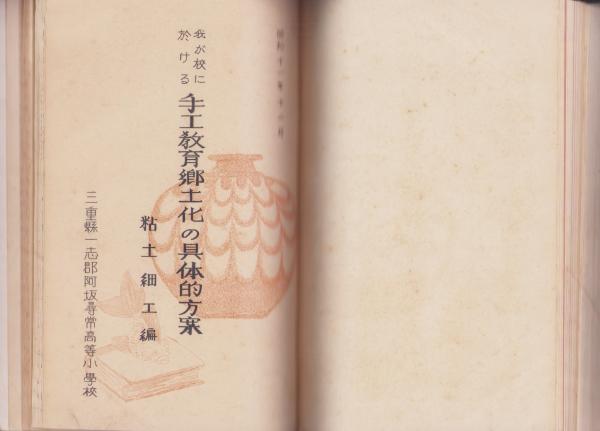 我が校に
於ける
手工教育郷土化の具体的方案
粘土細工編
三重縣一志郡阿坂尋常高等小學校